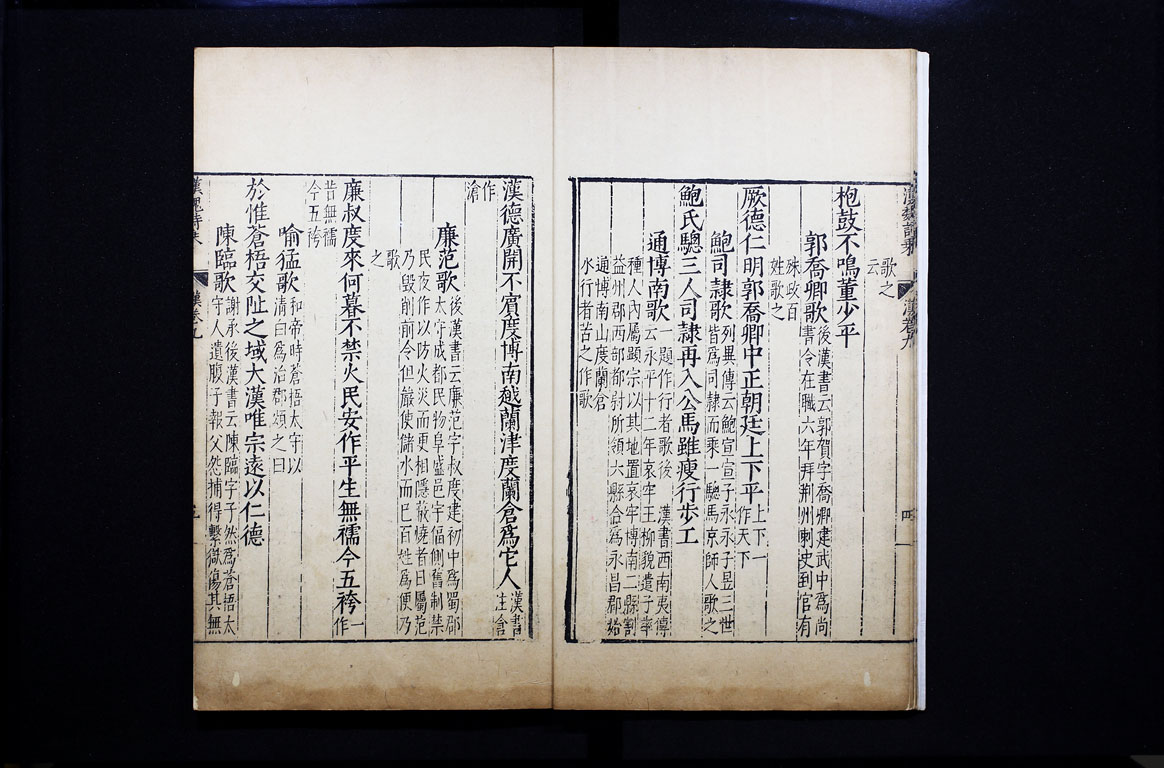 歌之
云
枹鼓不鳴董少平
郭喬卿歌
後漢書云郭賀字喬卿建武中爲尚
書令在職六年拜荆州刺史到官有
殊政百
姓歌之
厥德仁明郭喬卿中正朝廷上下平
上下一
作天下
鮑司隷歌
列異傳云鮑宣宣子永永子昱三世
皆爲司隷而乘一驄馬京師人歌之
鮑氏驄三人司隷再入公馬雖瘦行步工
通博南歌
一題作行者歌後漢書西南夷傳
云永平十二年哀牢王柳貌遣子率
種人內屬顯宗以其地置哀牢博南二縣割
益州郡西部都尉所領六縣合爲永昌郡始
通博南山度蘭倉
水行者苦之作歌
漢德廣開不賓度博南越蘭津度蘭倉爲它人
漢書
注倉
作
滄
廉范歌
後漢書云廉范字叔度建初中爲蜀郡
太守成都民物阜盛邑宇偪側舊制禁
民夜作以防火災而更相隱蔽燒者日屬范
乃毀削前令但嚴使儲水而已百姓爲便乃
歌
之
廉叔度來何暮不禁火民安作平生無襦今五袴
一
作
昔無襦
今五袴
喻猛歌
和帝時蒼梧太守以
清白爲治郡頌之曰
於惟蒼梧交阯之域大漢唯宗遠以仁德
陳臨歌
謝承後漢書云陳臨字子然爲蒼梧太
守人遺腹子報父怨捕得繫獄傷其無